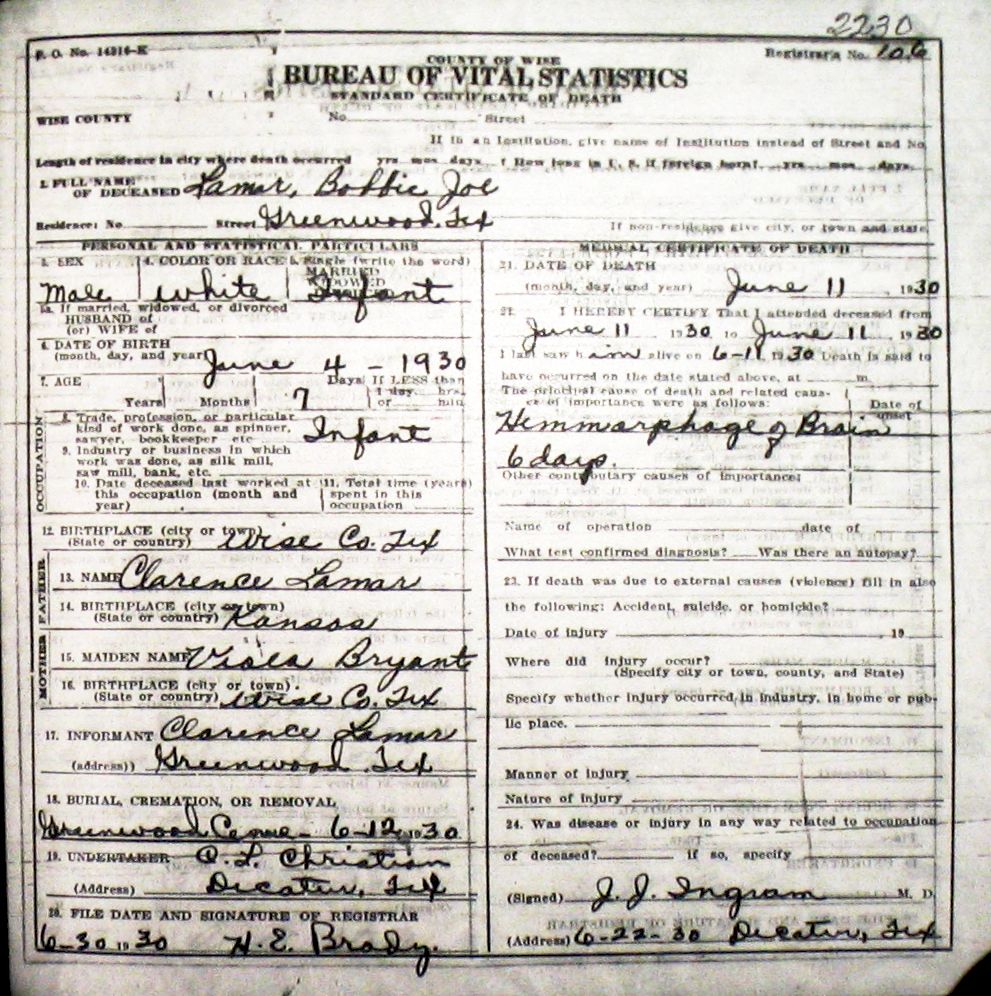 2230
F. O. No. 14316-K
Registrar's No. 106
COUNTY OF WISE
BUREAU OF VITAL STATISTICS
STANDARD CERTIFICATE OF DEATH
WISE COUNTY
No. Street
If in an Institution, give name of Institution instead of Street and No.
Length of residence in city where death occurred yrs mos days. How long in U. S. if foreign born? yrs mos days.
FULL NAME
OF DECEASED Lamar, Bobbie Joe
Residence: No. Street Greenwood, Tex
If non-residence give city, or town and state.
PERSONAL AND STATISTICAL PARTICULARS
3. SEX 4. COLOR OR RACE 5. Single (write the word)
MARRIED
WIDOWED
Male White Infant
5a. If married, widowed, or divorced
HUSBAND of
(or) WIFE of
6. DATE OF BIRTH
(month, day, and year) June 4 - 1930
7. AGE Days If LESS than
1 day, hrs.
Years Months 7 or min.
OCCUPATION
8. Trade, profession, or particular
kind of work done, as spinner,
sawyer, bookkeeper etc Infant
9. Industry or business in which
work was done, as silk mill,
saw mill, bank, etc.
10. Date deceased last worked at 11. Total time (years)
this occupation (month and spent in this
year) occupation
12. BIRTHPLACE (city or town)
(State or country) Wise Co. Tex
FATHER
13. NAME Clarence Lamar
14. BIRTHPLACE (city or town)
(State or country) Kansas
MOTHER
15. MAIDEN NAME Viola Bryant
16. BIRTHPLACE (city or town).
(State or country) Wise Co. Tex
17. INFORMANT Clarence Lamar
(address)) Greenwood Tex
18. BURIAL, CREMATION, OR REMOVAL
Greenwood Ceme - 6-12 1930
19. UNDERTAKER C. L. Christian
(Address) Decatur, Tex
20. FILE DATE AND SIGNATURE OF REGISTRAR
6-30 1930 H. E. Brady.
MEDICAL CERTIFICATE OF DEATH
21. DATE OF DEATH
(month, day, and year) June 11 1930
22. I HEREBY CERTIFY That I attended deceased from
June 11 1930 to June 11, 1930
I last saw him alive on 6-11 1930 Death is said to
have occurred on the date stated above, at m.
The principal cause of death and related cau-
ses of importance were as follows: Date of
onset
Hemmarphage of Brain
6 days.
Other contributary causes of importance:
Name of operation date of
What test confirmed diagnosis? Was there an autopsy?
23. If death was due to external causes (violence) fill in also
the following: Accident, suicide, or homicide?
Date of injury , 19
Where did injury occur?
(Specify city or town, county, and State)
Specify whether injury occurred in industry, in home or pub-
lic place.
Manner of injury
Nature of injury
24. Was disease or injury in any way related to occupation
of deceased? if so, specify
(Signed) J. J. Ingram M. D.
(Address) 6-22-30 Decatur, Tex